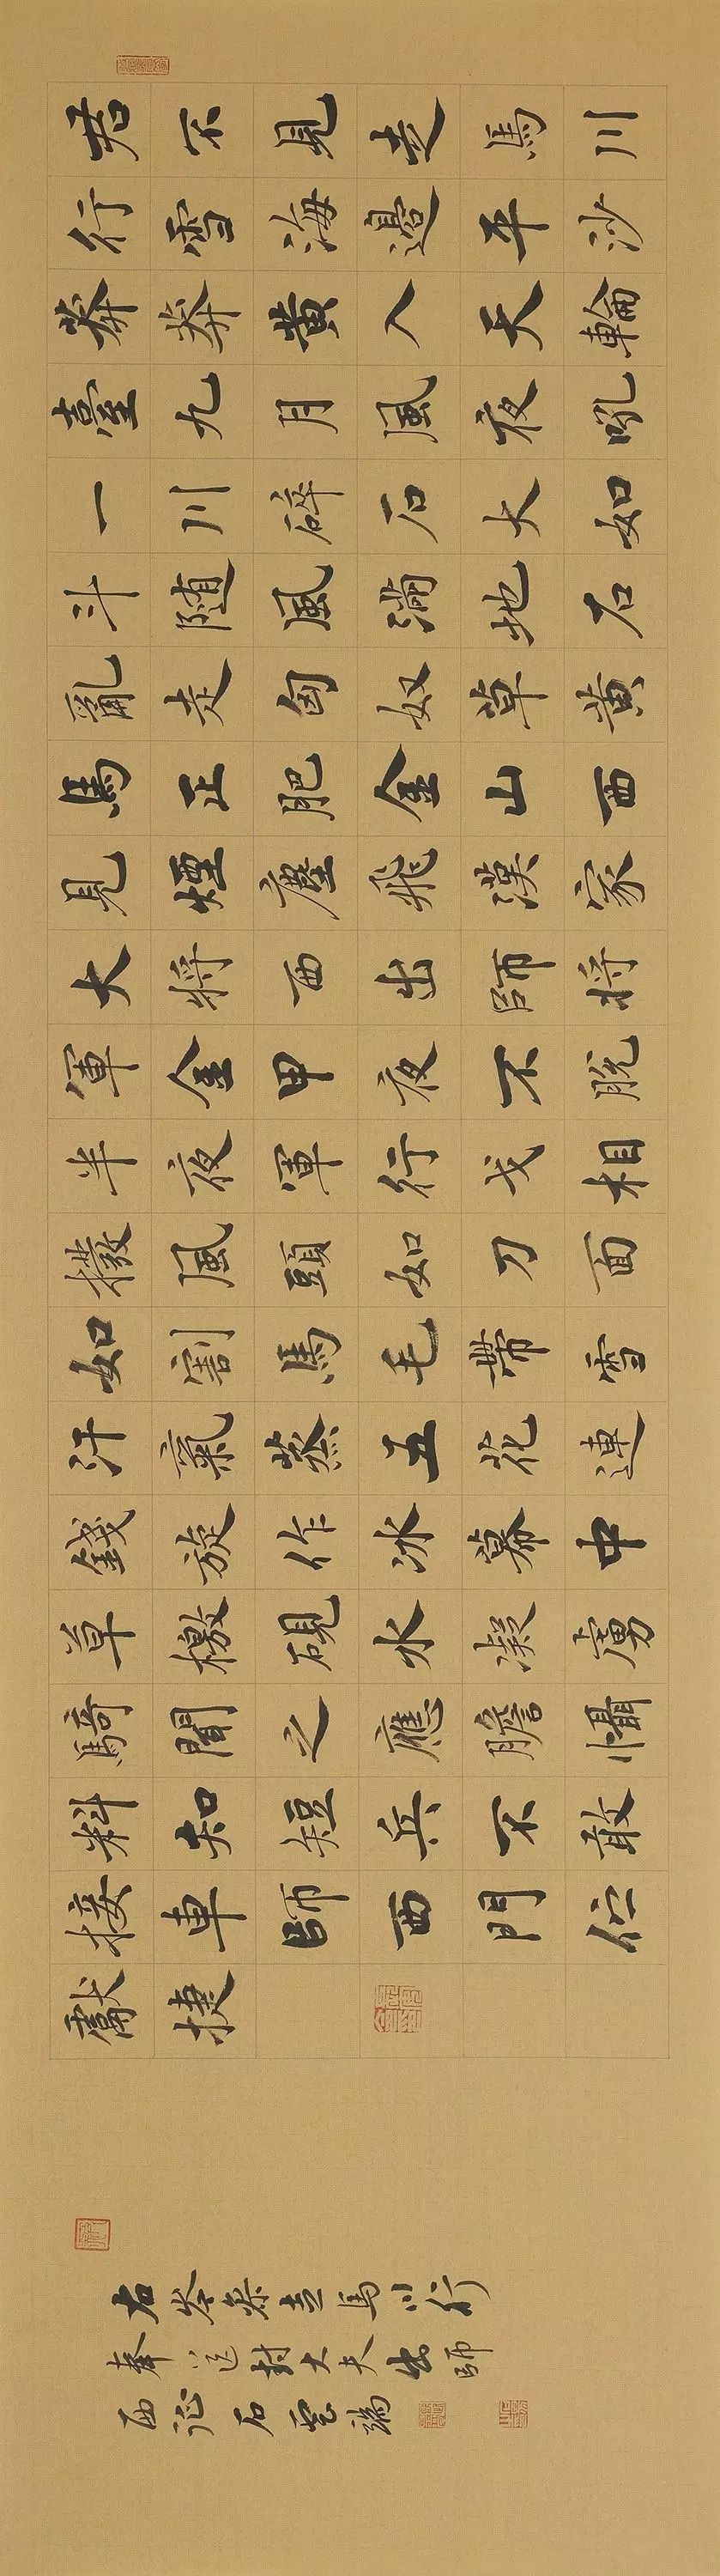 君不見走馬川
行雪海邊平沙
莽莽黄入天輪
臺九月風夜吼
一川碎石大如
斗随風滿地石
亂走匈奴草黄
馬正肥金山西
見煙塵飛漢家
大將西出師將
軍金甲夜不脫
半夜軍行戈相
撥風頭如刀面
如割馬毛帶雪
汗氣蒸五花連
錢旋作冰幕中
草檄硯水凝虜
騎聞之應膽懾
料知短兵不敢
接車師西門佇
獻捷
右岑參走馬川行
奉送封大夫出師
西征石